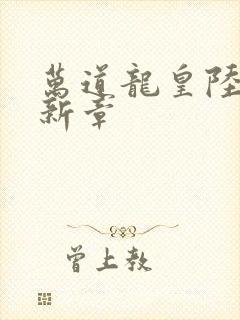 萬道龍皇陸
新章
曾上教